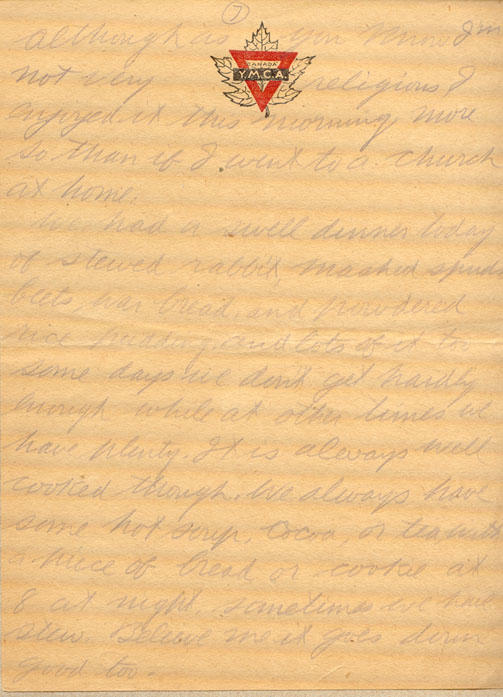 7
although as you know I'm
CANADA
Y.M.C.A.
not very religious I
enjoyed it this morning more
so than if I went to a church
at home.
We had a swell dinner today
of stewed rabbit, mashed spuds
beets, war bread, and powdered
rice pudding, and lots of it too
some days we don't get hardly
enough while at other times we
have plenty. It is always well
cooked though. We always have
some hot soup, cocoa, or tea with
a piece of bread or cookie at
8 at night, sometimes we have
stew. Believe me it goes down
good too.